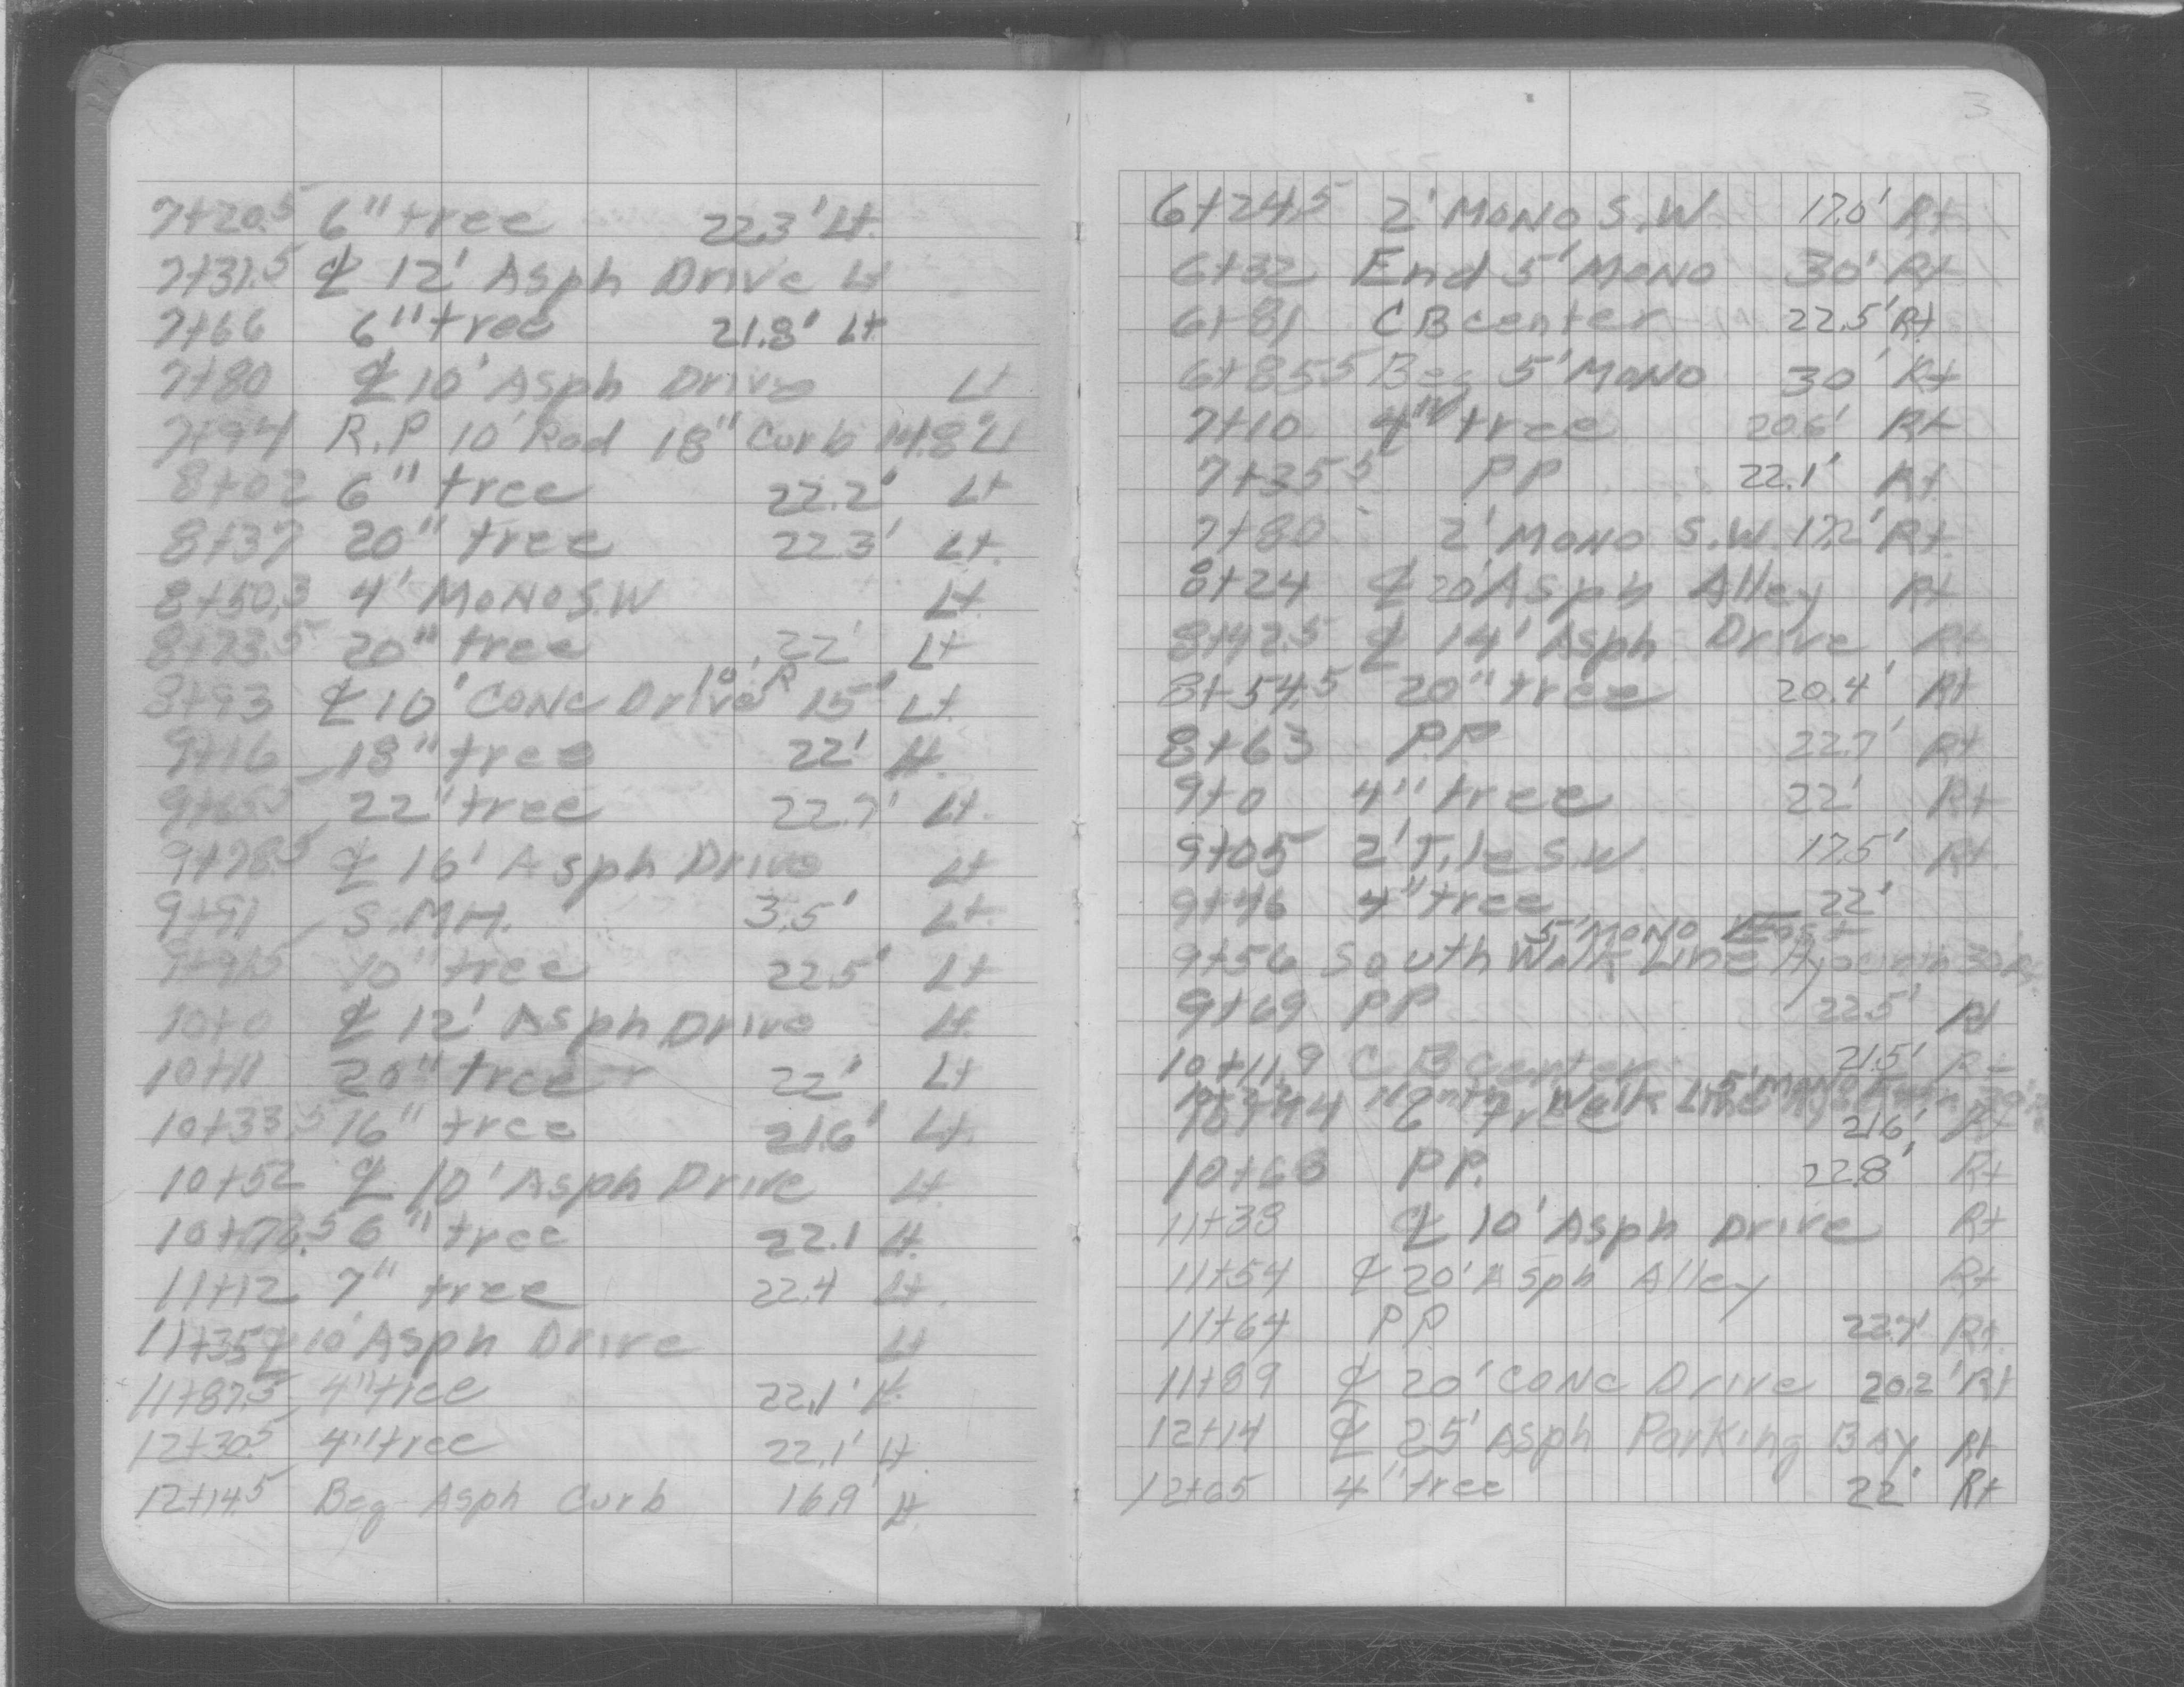 7+20.5 6" tree 22.3' Lt.
7+31.5 ℄ 12' Asph Drive Lt
7+66 6" tree 21.8' Lt.
7+80 ℄ 10' Asph Drive Lt
7+94 R.P 10' Rad 18" Curb 14.8' Lt
8+02 6" tree 22.2' Lt
8+37 20" tree 22.3' Lt.
8+50.3 4' MONO S.W Lt.
8+73.5 20" tree 22' Lt
10' R
8+93 ℄ 10' CONC Drive 15' Lt.
9+16 18" tree 22' Lt.
22" tree 22.7' Lt.
9+78.5 ℄ 16' Asph Drive Lt
9+91 S.M.H. 3.5' Lt.
10" tree 22.5' Lt
10+0 ℄ 12' Asph Drive Lt.
10+11 20" tree 22' Lt
10+33.5 16" tree 21.6' Lt.
10+52 ℄ 10' Asph Drive Lt.
10+78.5 6" tree 22.1 Lt.
11+12 7" tree 22.4 Lt.
11+35 ℄ 10' Asph Drive Lt
11+87.5 4" tree 22.1' Lt.
12+30.5 4" tree 22.1' Lt.
12+14.5 Beg Asph Curb 16.9' Lt.
3
6+24.5 2' MONO S.W. 17.0' Rt.
6+32 End 5' MONO 30' Rt
6+81 CB center 22.5' Rt
6+85.5 Beg 5' MONO 30' Rt
7+10 4" tree 20.6' Rt
7+35.5 PP 22.1' Rt
7+80 2' MONO S.W. 17.2' Rt.
8+24 ℄ 20' Asph Alley Rt
8+42.5 ℄ 14' Asph Drive Rt
8+54.5 20" tree 20.4' Rt
8+63 P.P. 22.7' Rt
9+0 4" tree 22' Rt
9+05 2' Tile S.W. 17.5' Rt.
9+46 4" tree 22'
5' MONO
9+56 South Walk Line Hyacinth 30' Rt.
9+69 PP 22.5' Rt
10+11.9 CB Center 21.5' Rt
North Walk Line 5' MONO
10+44 6" tree 21.6' Rt
10+68 P.P. 22.8' Rt
11+33 ℄ 10' Asph Drive Rt
11+54 ℄ 20' Asph Alley Rt
11+64 P.P. 22.7' Rt
11+89 ℄ 20' CONC Drive 20.2' Rt
12+14 ℄ 25' Asph Parking Bay Rt
12+65 4" tree 22' Rt